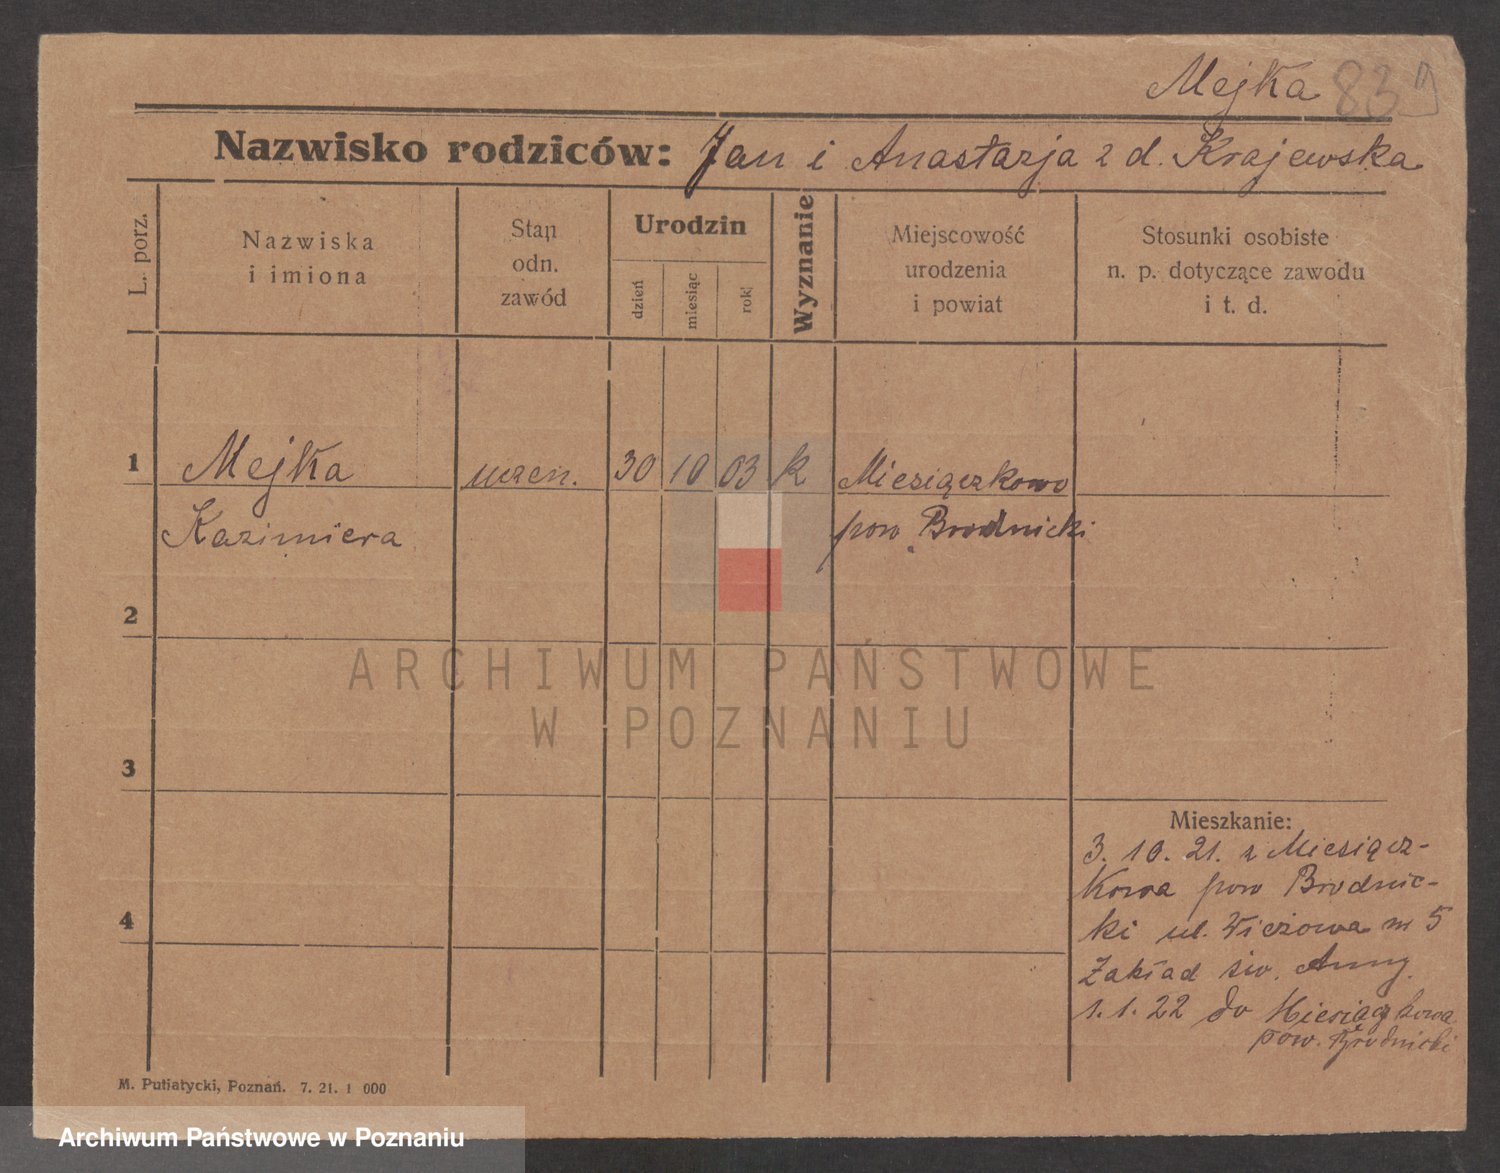 Mejka 83
Nazwisko rodziców: Jan i Anastazja z d. Krajewska
L. porz.
Nazwiska
i imiona
Stan
odn.
zawód
Urodzin
dzień
miesiąc
rok
Wyznanie
Miejscowość
urodzenia
i powiat
Stosunki osobiste
n. p. dotyczące zawodu
i t. d.
1 Mejka uczen. 30 10 03 k Miesiączkowo
Kazimiera pow Brodnicki
2
ARCHIWUM PAŃSTWOWE
W POZNANIU
3
Mieszkanie:
3. 10. 21. z Miesiącz-
kowa pow Brodnic-
4
ki ul. Wieżowa nr 5
Zakład św. Anny.
1. 1. 22 do Miesiączkowa
pow. Brodnicki
M. Putiatycki, Poznań. 7. 21. 1 000
Archiwum Państwowe w Poznaniu